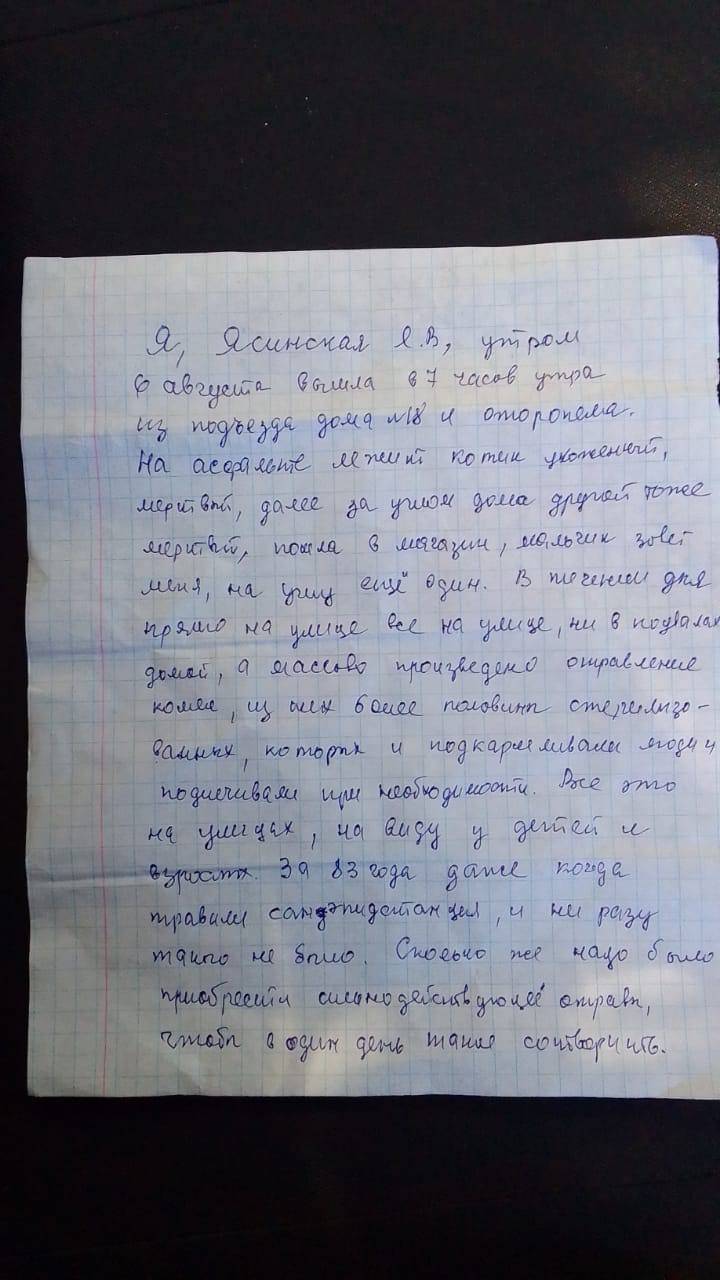 Я, Ясинская Л.В, утром
6 августа вышла в 7 часов утра
из подъезда дома №18 и оторопела.
На асфальте лежит котик ухоженный,
мертвый, далее за углом дома другой тоже
мертвый, пошла в магазин, мальчик зовет
меня, на улиц ещё один. В течении дня
прямо на улице все на улице, ни в подвалах
домой, а массово произведено отравление
кошек, из них более половины стерилизо-
ванных, которых и подкармливали люди и
подлечивали при необходимости. Все это
на улицах, на виду у детей и
взрослых. За 83 года даже когда
травили санэпидстанция, и ни разу
такого не было. Сколько же надо было
приобрести сильнодействующее отравы,
чтобы в один день такое сотворить.